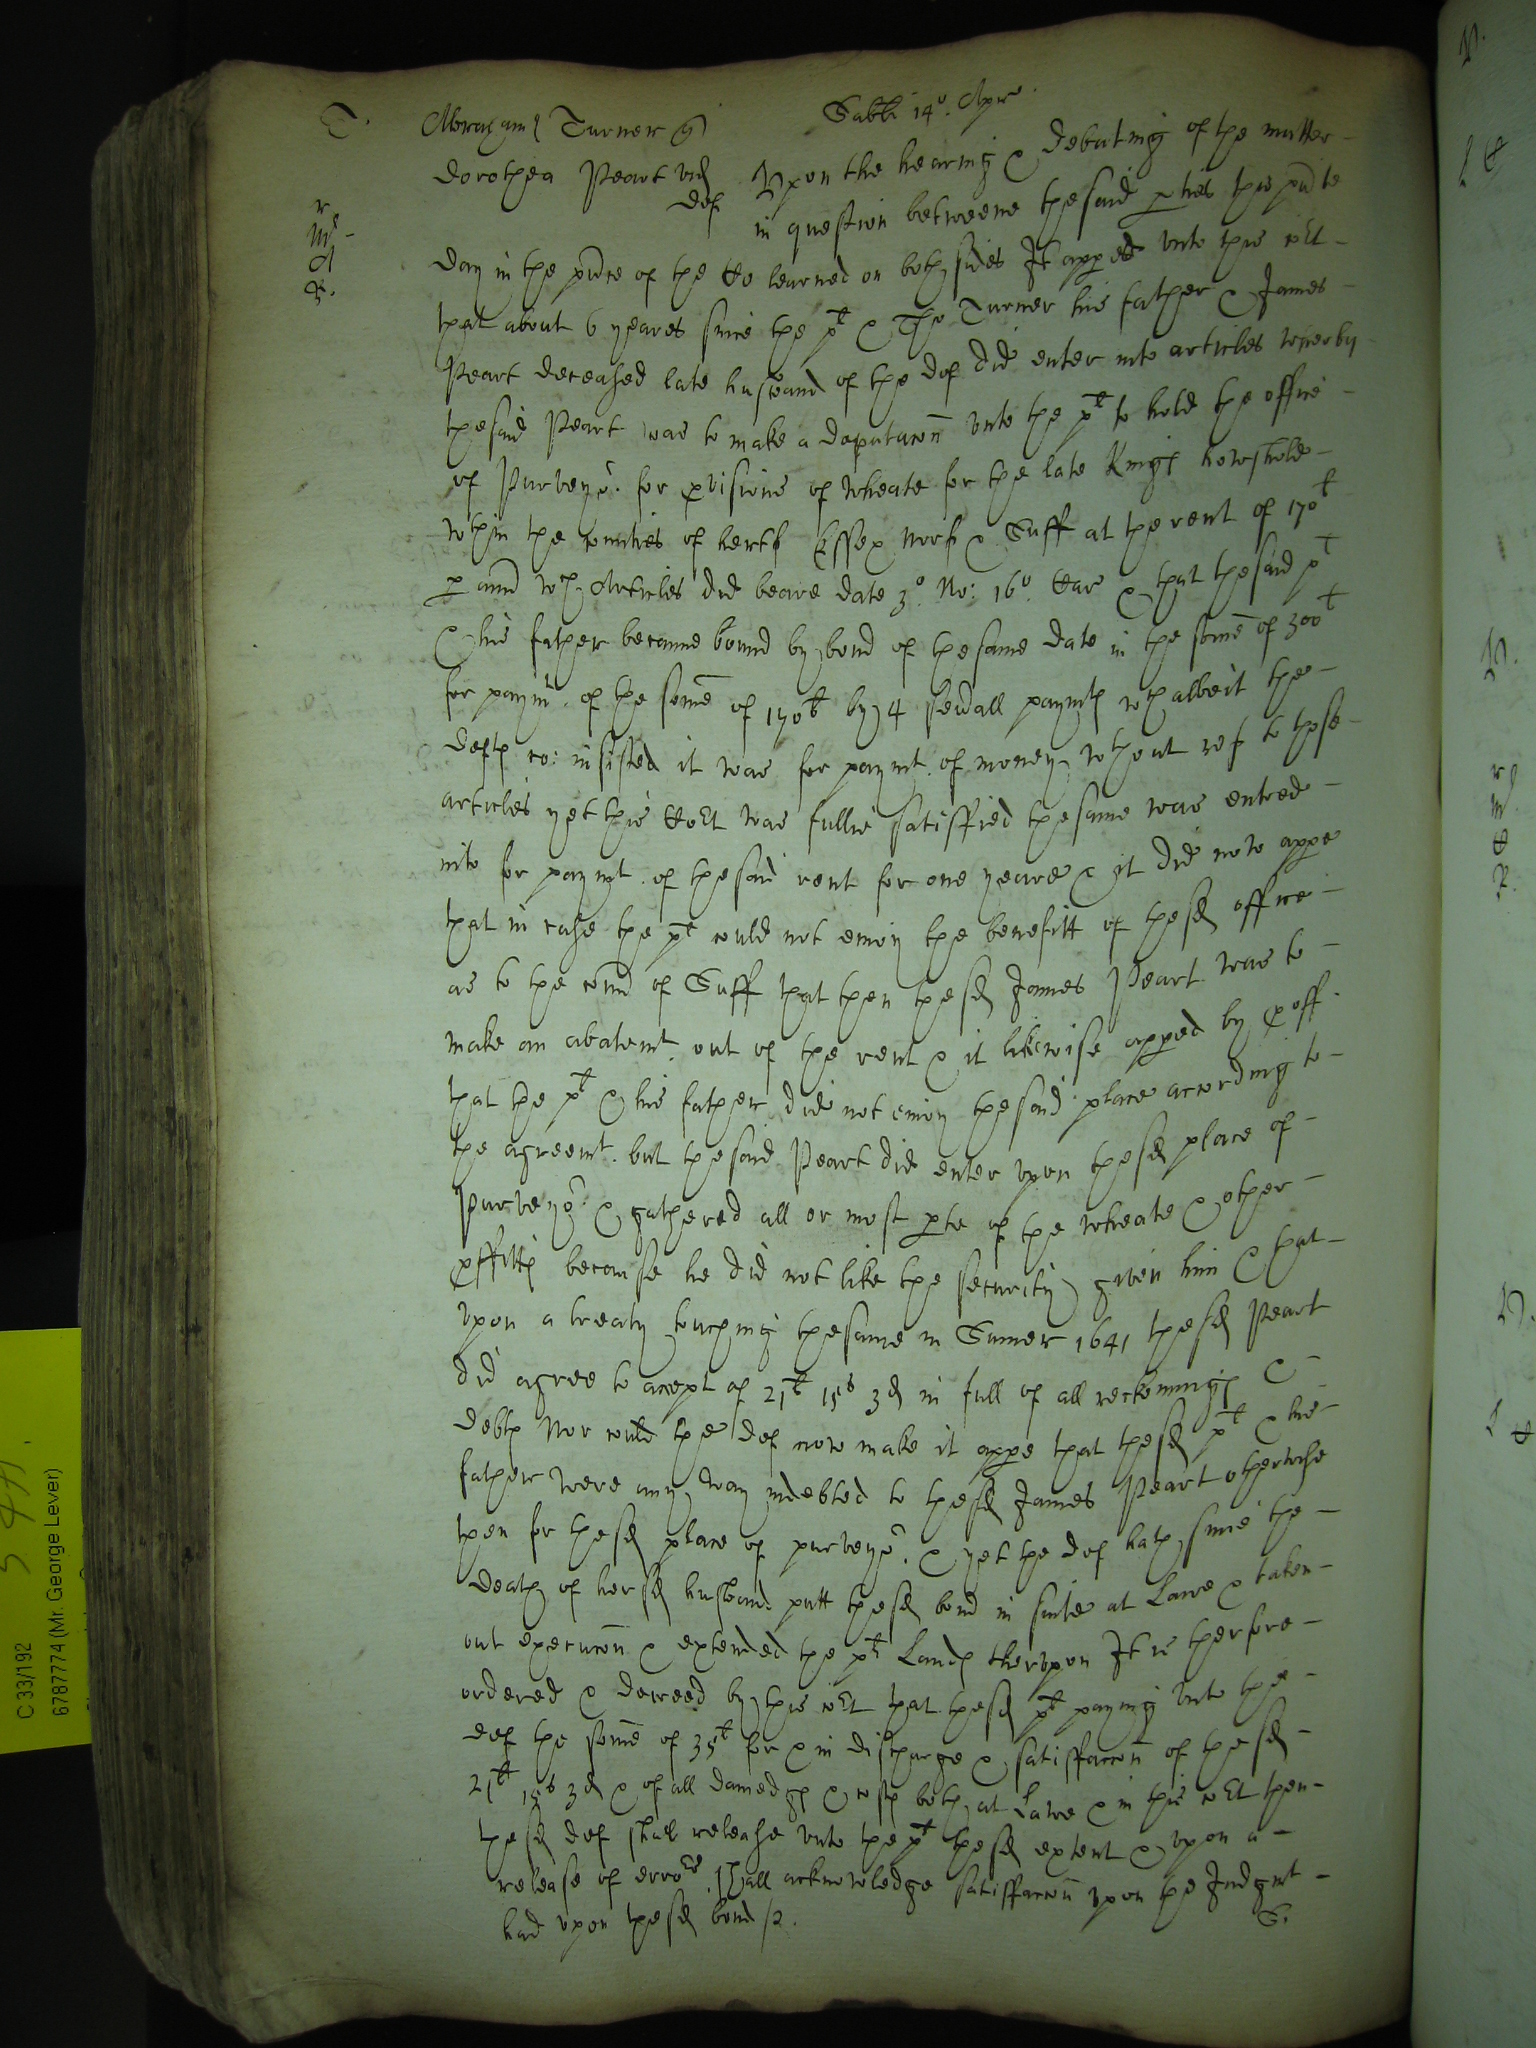 T. Abrahams Turner q
Sabbti 14º. Apr
Dorothea Peart vid
def
Upon the hearing & debating of the matter
in question betweene the said pties this pnte
day in the pnce of the Co learned on both sides It apped unto this Cort
that about 6 yeares since the plt & Tho Turner his father & James
Peart deceased late husband of the def did enter into articles wherby
the said Peart was to make a deputacon unto the plt to hold the office
of Purveyor. for pvisions of wheate for the late Kings howshold
wthin the counties of hertf Essex Norf & Suff at the rent of 170l
p annu wch Articles did beare date 3º. No: 16º. Car & that the said plt
& his father became bound by bond of the same date in the some of 300l
for paymt. of the some of 170l by 4 sevall paymts wch albeit the
defts co: insisted it was for paymt. of money wthout ref to those
articles yet this Cort was fullie satisfied the same was entred
into for paymt. of the said rent for one yeare & it did now appe
that in case the plt could not enioy the benefitt of the sd office
as to the coun of Suff that then the sd James Peart was to
make an abatemt. out of the rent & it likewise apped by proff
that the plt & his father did not enioy the said place according to
the agreemt. but the said Peart did enter upon the sd place of
Purveyor. & gathered all or most pte of the wheate & other
pffitts because he did not like the security given him & that
upon a treaty touching the same in Sumer 1641 the sd Peart
did agree to accept of 21l 15s 3d in full of all reckonings &
debts Nor could the def now make it appe that the sd plt & his
father were any way indebted to the sd James Peart otherwise
then for the sd place of purveyor. & yet the def hath since the
death of her sd husband putt the sd bond in suite at Lawe & taken
out execucon & extended the plts Lands therupon It is therfore
ordered & decreed by this Cort that the sd plt paying unto the
def the some of 35l for & in discharge & satisfaccon of the sd
21l 15s 3d & of all damedges & costs both at Lawe & in this Cort then
the sd def shall release unto the plt the sd extent & upon a
release of errors shall acknowledge satisfaccon upon the Judgmt
had upon the sd bond /2.
C 33/192
6787774 (Mr. George Lever)